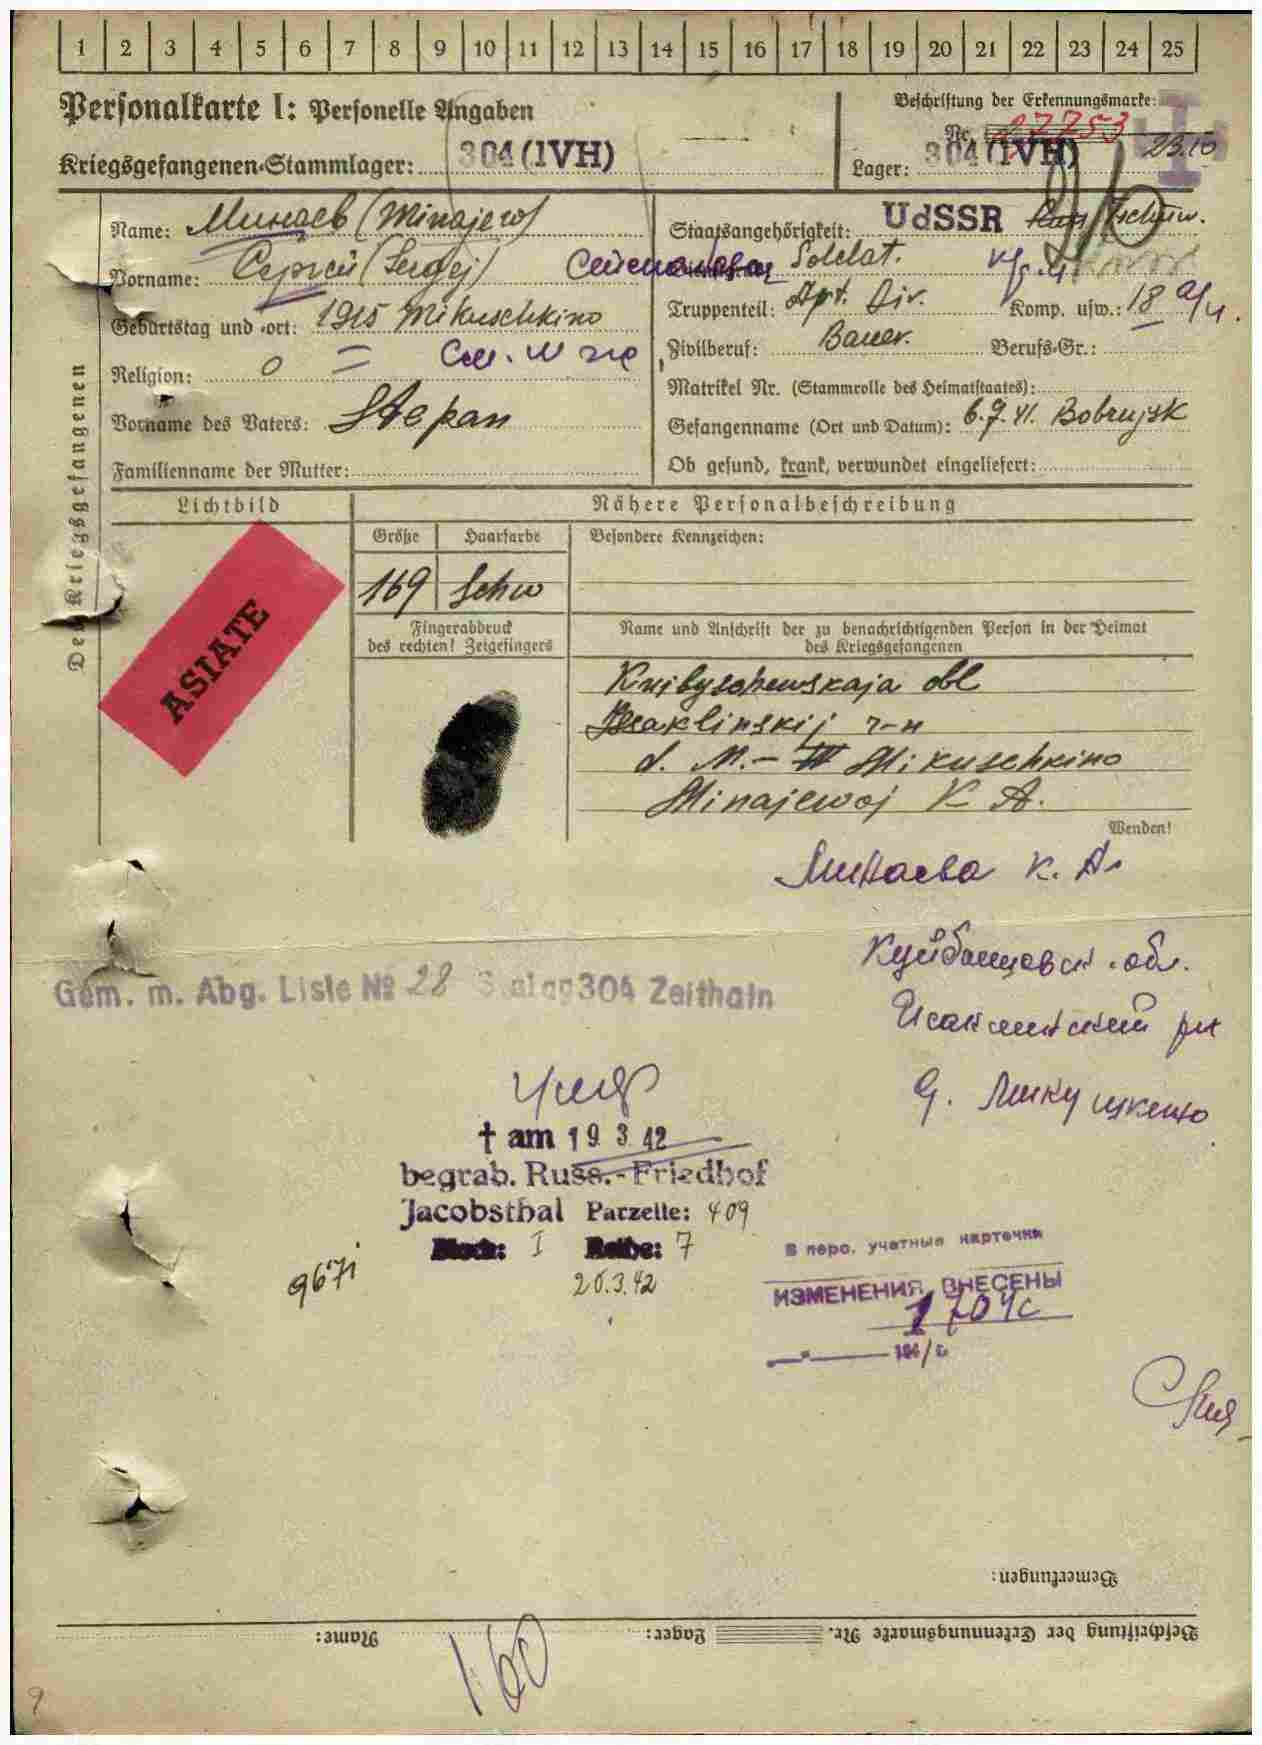 1 2 3 4 5 6 7 8 9 10 11 12 13 14 15 16 17 18 19 20 21 22 23 24 25
Personalkarte I: Personelle Angaben
Kriegsgefangenen-Stammlager: 304 (IVH)
Beschriftung der Erkennungsmarke:
Nr. 27753
Lager: 304 (IVH) 23.10
Des Kriegsgefangenen
Name: Минаев (Minajew)
Vorname: Сергей (Sergej)
Geburtstag und -ort: 1915 Mikuschkino
Religion: 0
Vorname des Vaters: Stepan
Familienname der Mutter:
Staatsangehörigkeit: UdSSR
Soldat.
Truppenteil: Art. Div. Komp. usw.: 18
Zivilberuf: Bauer. Berufs-Gr.:
Matrikel Nr. (Stammrolle des Heimatstaates):
Gefangenname (Ort und Datum): 6.7.41. Bobrujsk
Ob gesund, krank, verwundet eingeliefert:
Lichtbild
Nähere Personalbeschreibung
Größe Haarfarbe Besondere Kennzeichen:
169 Schw
ASIATE
Fingerabdruck
des rechten! Zeigefingers
Name und Anschrift der zu benachrichtigenden Person in der Heimat
des Kriegsgefangenen
Kuibyschewskaja obl
Isaklinskij r-n
d. M.- Mikuschkino
Minajewoj K A.
Wenden!
Минаева К. А.
Куйбышевск. обл.
Исаклинский рн
д. Микушкино
Gem. m. Abg. Liste № 28 Stalag 304 Zeithain
† am 19 3. 42
begrab. Russ.-Friedhof
Jacobsthal Parzelle: 409
Block: I Reihe: 7
20.3.42
9671
В перс. учетные карточки
ИЗМЕНЕНИЯ ВНЕСЕНЫ
1704с
Bemerkungen:
Beschriftung der Erkennungsmarke Nr. Lager: Name:
160
9